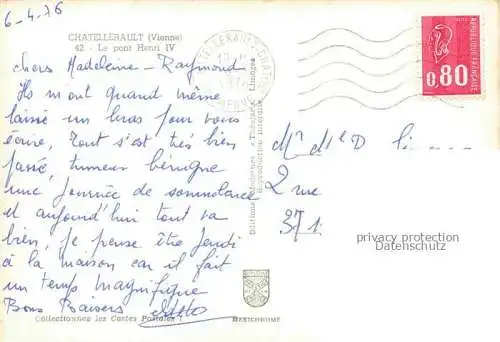 6-4-76
CHATELLERAULT (Vienne)
42 - Le pont Henri IV
chers Madeleine - Raymond
Ils m'ont quand même
laissé un bras pour vous
écrire, Tout s'est très bien
passé, tumeur bénigne
une Journée de somnolance
et aujourd'hui tout va
bien, je pense être Jeudi
à la maison car il fait
un temps magnifique
Bons Baisers
Collectionnez les Cartes Postales !
BASTICHROME
Reproduction interdite
REPUBLIQUE FRANÇAISE
0,80
2 rue
371
privacy protection
Datenschutz